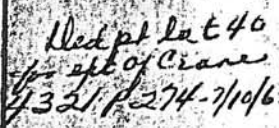 Ded pt lot 40
for ept of Crane
4321 P 274-7/10/6